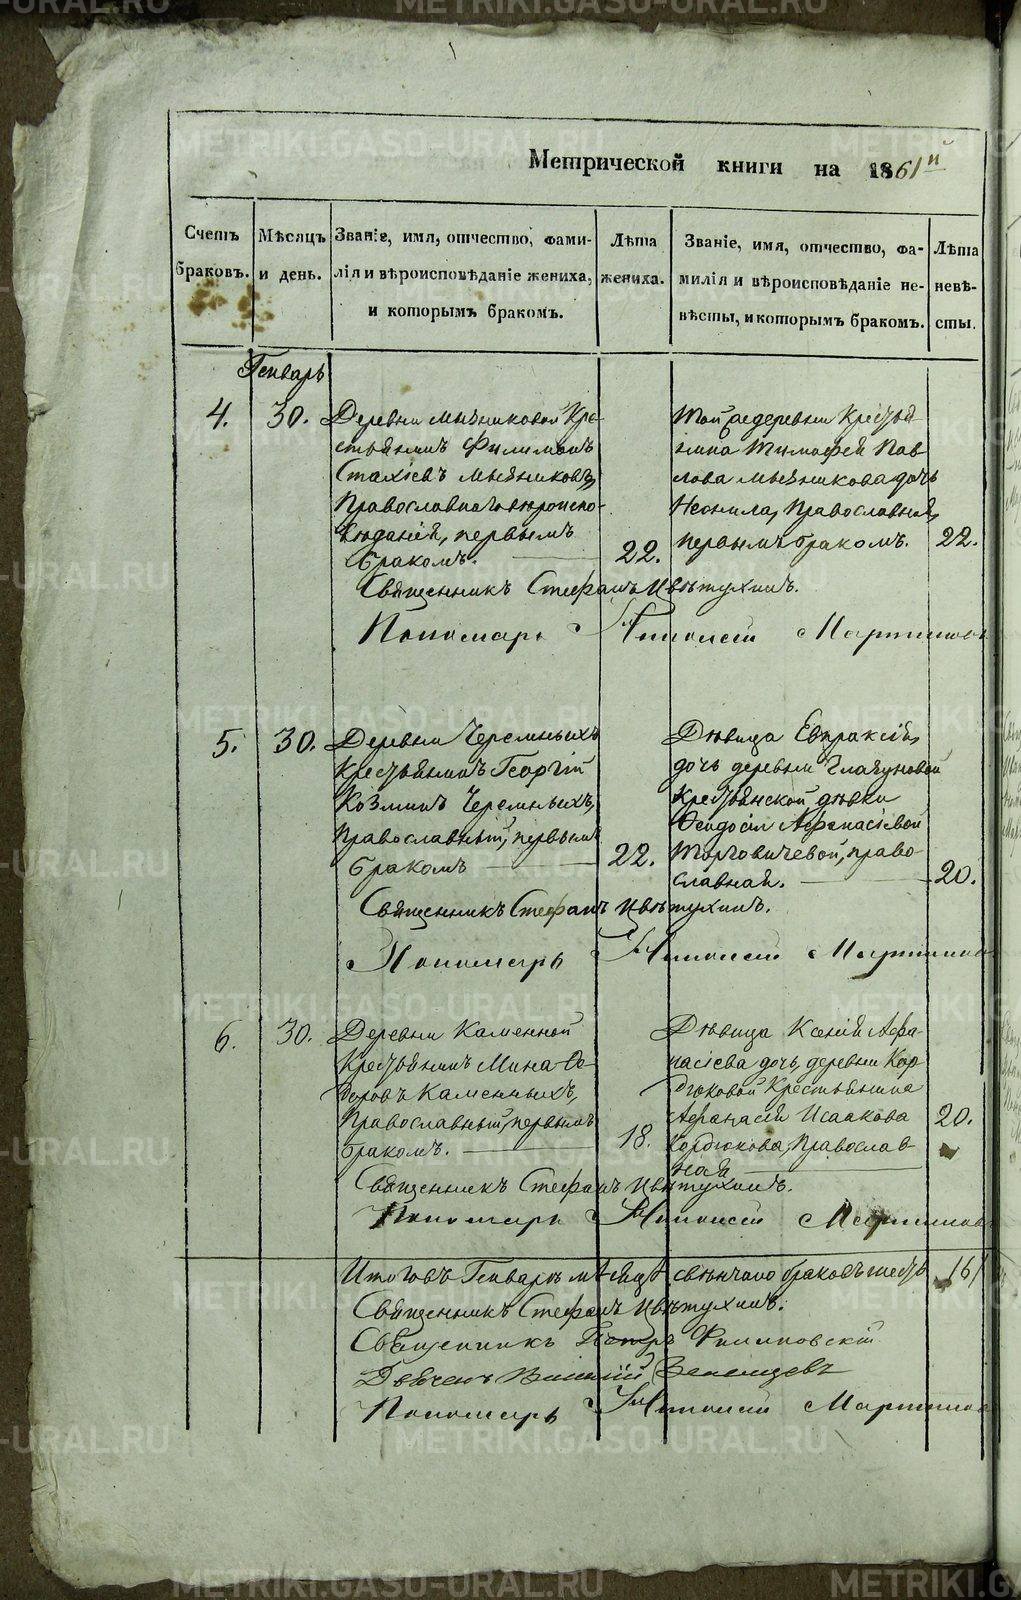 METRIKI.GASO-URAL.RU
Метрической книги на 1861й
Счетъ браковъ.
Мѣсяцъ и день.
Званіе, имя, отчество, фами-
лія и вѣроисповѣданіе жениха,
и которымъ бракомъ.
Лѣта
жениха.
Званіе, имя, отчество, фа-
милія и вѣроисповѣданіе не-
вѣсты, и которымъ бракомъ.
Лѣта
невѣ-
сты.
Генварь
4.
30.
Деревни Мясниковой Кре-
стьянинъ Филимонъ
Стахіевъ Мясниковъ,
Православнаго вѣроиспо-
вѣданія, первымъ
бракомъ.
22.
Той же деревни Крестья
нина Тимофея Пав
лова Мясникова дочь
Неонила, Православная,
первымъ бракомъ.
22.
Священникъ Стефанъ Цвѣтухинъ.
Пономарь Мартинов
5.
30.
Деревни Черемныхъ
Крестьянинъ Георгій
Козминъ Черемныхъ,
Православный, первымъ
бракомъ
22.
Дѣвица Евпраксія,
дочь деревни Глазуновой
Крестьянской дѣвки
Феодосіи Афанасіевой
Торговичевой, право
славная.
20.
Священникъ Стефанъ Цвѣтухинъ.
Пономарь Мартинов
6.
30.
Деревни Каменной
Крестьянинъ Мина Ѳе
доровъ Каменныхъ,
Православный, первымъ
бракомъ.
18.
Дѣвица Ксенія Афа
насіева дочь, деревни Кор
дюковой Крестьянина
Афанасія Исаакова
Кордюкова, Православ
ная
20.
Священникъ Стефанъ Цвѣтухинъ.
Пономарь Мартинов
Итого въ Генварѣ мѣсяцѣ свѣнчано браковъ шесть
Священникъ Стефанъ Цвѣтухинъ.
Священникъ Петръ Филиповскій
Пономарь Мартинов